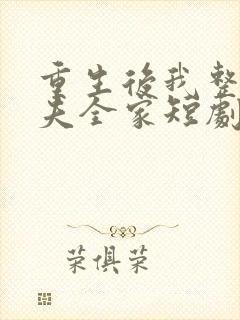 重生後我整
夫全家短劇
荣俱荣